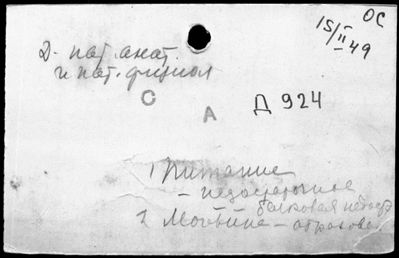 ОС
15/II-49
Д- пат. анат.
и пат. физиол
С А Д 924
1 Питание
- недостаточное
белковая недост
2 Мочевина - образов